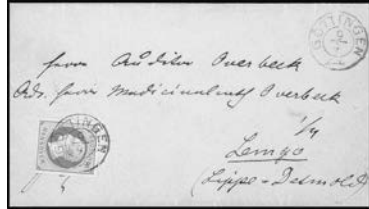 GÖTTINGEN
Herrn Auditor Overbeck
Adr. Herrn Medicinalrath Overbeck
in
Lemgo
(Lippe-Detmold)